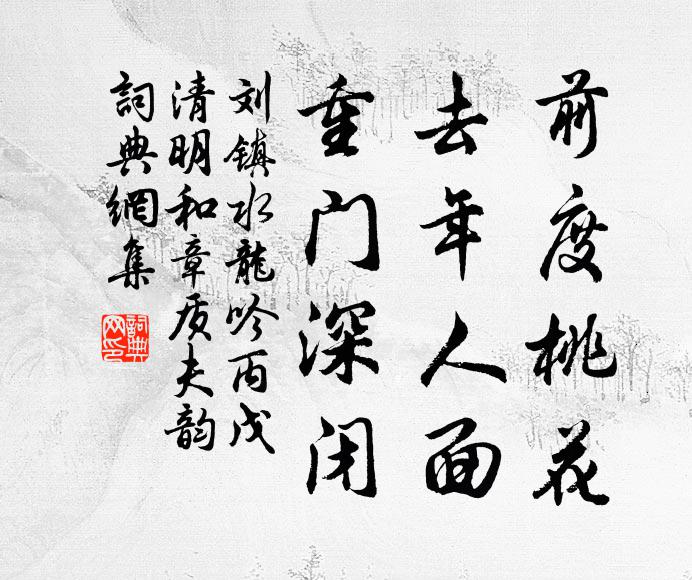 前度桃花
去年人面
重门深闭
刘镇水龍吟丙戌
清明和章质夫韵
詞典網集
詞典网印